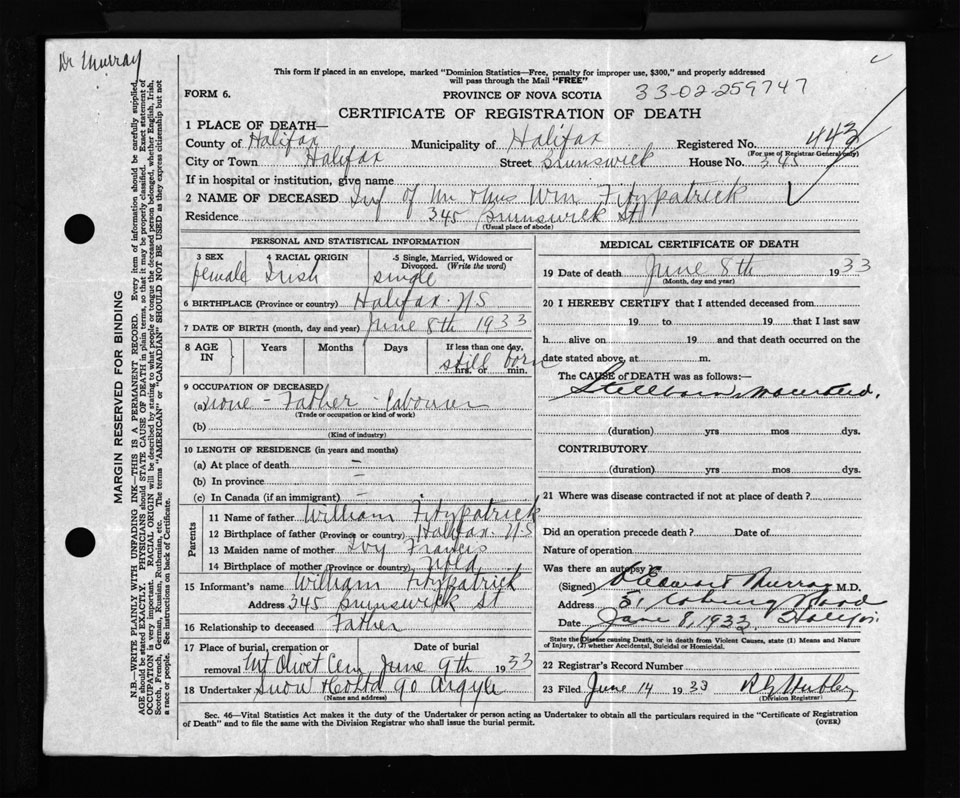 Dr Murray
This form if placed in an envelope, marked "Dominion Statistics—Free, penalty for improper use, $300," and properly addressed
will pass through the Mail "FREE"
FORM 6.
PROVINCE OF NOVA SCOTIA
33-02-259747
CERTIFICATE OF REGISTRATION OF DEATH
1 PLACE OF DEATH—
County of Halifax Municipality of Halifax Registered No. 443
(For use of Registrar General only)
City or Town Halifax Street Brunswick House No. 345
If in hospital or institution, give name
2 NAME OF DECEASED Inf of Mr & Mrs Wm Fitzpatrick
Residence 345 Brunswick St
(Usual place of abode)
PERSONAL AND STATISTICAL INFORMATION
3 SEX 4 RACIAL ORIGIN 5 Single, Married, Widowed or Divorced. (Write the word)
female Irish single
6 BIRTHPLACE (Province or country) Halifax. N S
7 DATE OF BIRTH (month, day and year) June 8th 1933
8 AGE IN Years Months Days If less than one day,
still born hrs. or min.
9 OCCUPATION OF DECEASED
(a) none - Father - labourer
(Trade or occupation or kind of work)
(b)
(Kind of industry)
10 LENGTH OF RESIDENCE (in years and months)
(a) At place of death —
(b) In province —
(c) In Canada (if an immigrant) —
Parents
11 Name of father William Fitzpatrick
12 Birthplace of father (Province or country) Halifax. N-S
13 Maiden name of mother Ivy Francis
14 Birthplace of mother (Province or country) Nfld
15 Informant's name William Fitzpatrick
Address 345 Brunswick St
16 Relationship to deceased Father
17 Place of burial, cremation or removal Date of burial
Mt Olivet Cem June 9th 1933
18 Undertaker Snow & Co Ltd 90 Argyle
(Name and address)
MEDICAL CERTIFICATE OF DEATH
19 Date of death June 8th 1933
(Month, day and year)
20 I HEREBY CERTIFY that I attended deceased from
19 to 19 that I last saw
h alive on 19 and that death occurred on the
date stated above, at m.
The CAUSE of DEATH was as follows:—
Stillborn macerated.
(duration) yrs mos dys.
CONTRIBUTORY
(duration) yrs mos dys.
21 Where was disease contracted if not at place of death?
Did an operation precede death? Date of
Nature of operation
Was there an autopsy
(Signed) Murray M.D.
Address Coburg Road
Date June 8, 1933. Halifax
State the Disease causing Death, or in death from Violent Causes, state (1) Means and Nature
of Injury, (2) whether Accidental, Suicidal or Homicidal.
22 Registrar's Record Number
23 Filed June 14 1933
(Division Registrar)
Sec. 46—Vital Statistics Act makes it the duty of the Undertaker or person acting as Undertaker to obtain all the particulars required in the "Certificate of Registration
of Death" and to file the same with the Division Registrar who shall issue the burial permit.
(OVER)
MARGIN RESERVED FOR BINDING
N.B.—WRITE PLAINLY WITH UNFADING INK—THIS IS A PERMANENT RECORD. Every item of information should be carefully supplied,
AGE should be stated EXACTLY. PHYSICIANS should STATE CAUSE OF DEATH in plain terms, so that it may be properly classified. Exact statement of
OCCUPATION is very important. RACIAL ORIGIN will be described by stating to what people or tongue the deceased person belonged, whether English, Irish,
Scotch, French, German, Russian, Ruthenian, etc. The terms "AMERICAN" or "CANADIAN" SHOULD NOT BE USED as they express citizenship but not
a race or people. See instructions on back of Certificate.